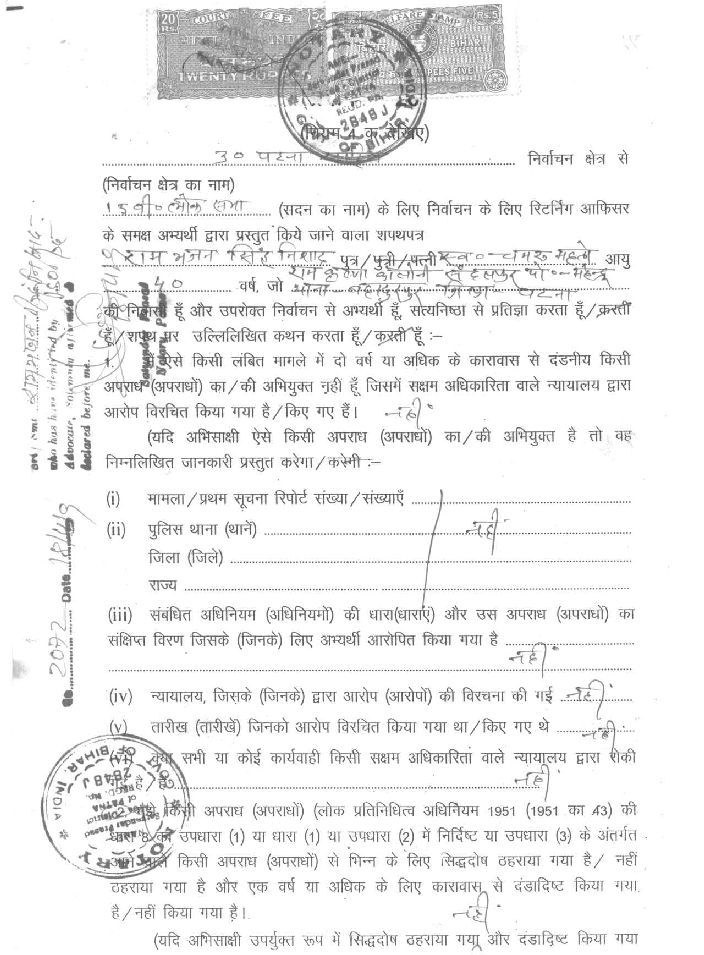 20 Rs. COURT FEE WELFARE STAMP Rs.5
BIHAR
TWENTY RUPEES RUPEES FIVE
NOTARY
REGD. No.
2848J
GOVT. OF BIHAR, INDIA
(नियम 4 क देखिए)
30 पटना निर्वाचन क्षेत्र से
(निर्वाचन क्षेत्र का नाम)
15वी० लोक सभा (सदन का नाम) के लिए निर्वाचन के लिए रिटर्निंग आफिसर
के समक्ष अभ्यर्थी द्वारा प्रस्तुत किये जाने वाला शपथपत्र
राम भजन सिंह निशाद पुत्र/पुत्री/पत्नी स्व०-चमरू महतो आयु
राम कृष्णा कॉलोनी संदलपुर पो०-महेन्द्रु
40 वर्ष, जो थाना-बहादुरपुर जिला पटना
की निवासी हूँ और उपरोक्त निर्वाचन से अभ्यर्थी हूँ, सत्यनिष्ठा से प्रतिज्ञा करता हूँ/करती
/शपथ पर उल्लिलिखित कथन करता हूँ/करती हूँ :–
1. मैं ऐसे किसी लंबित मामले में दो वर्ष या अधिक के कारावास से दंडनीय किसी
अपराध (अपराधों) का/की अभियुक्त नहीं हूँ जिसमें सक्षम अधिकारिता वाले न्यायालय द्वारा
आरोप विरचित किया गया है/किए गए हैं। नहीं
(यदि अभिसाक्षी ऐसे किसी अपराध (अपराधों) का/की अभियुक्त है तो वह
निम्नलिखित जानकारी प्रस्तुत करेगा/करेगी :–
(i) मामला/प्रथम सूचना रिपोर्ट संख्या/संख्याएँ
(ii) पुलिस थाना (थानें) नहीं
जिला (जिले)
राज्य
(iii) संबंधित अधिनियम (अधिनियमों) की धारा(धाराएं) और उस अपराध (अपराधों) का
संक्षिप्त विरण जिसके (जिनके) लिए अभ्यर्थी आरोपित किया गया है
नहीं
(iv) न्यायालय, जिसके (जिनके) द्वारा आरोप (आरोपों) की विरचना की गई नहीं
(v) तारीख (तारीखें) जिनको आरोप विरचित किया गया था/किए गए थे नहीं
(vi) क्या सभी या कोई कार्यवाही किसी सक्षम अधिकारिता वाले न्यायालय द्वारा रोकी
गई है/हैं नहीं
किसी अपराध (अपराधों) (लोक प्रतिनिधित्व अधिनियम 1951 (1951 का 43) की
धारा 8 की उपधारा (1) या धारा (1) या उपधारा (2) में निर्दिष्ट या उपधारा (3) के अंतर्गत
आने वाले किसी अपराध (अपराधों) से भिन्न के लिए सिद्धदोष ठहराया गया है/ नहीं
ठहराया गया है और एक वर्ष या अधिक के लिए कारावास से दंडादिष्ट किया गया
है/नहीं किया गया है। नहीं
(यदि अभिसाक्षी उपर्युक्त रूप में सिद्धदोष ठहराया गया और दंडादिष्ट किया गया
who has been identified by
Advocate, Solemnly affirmed &
declared before me.
No. 2072 Date
NOTARY
REGD. No.
2848J
GOVT. OF BIHAR, INDIA